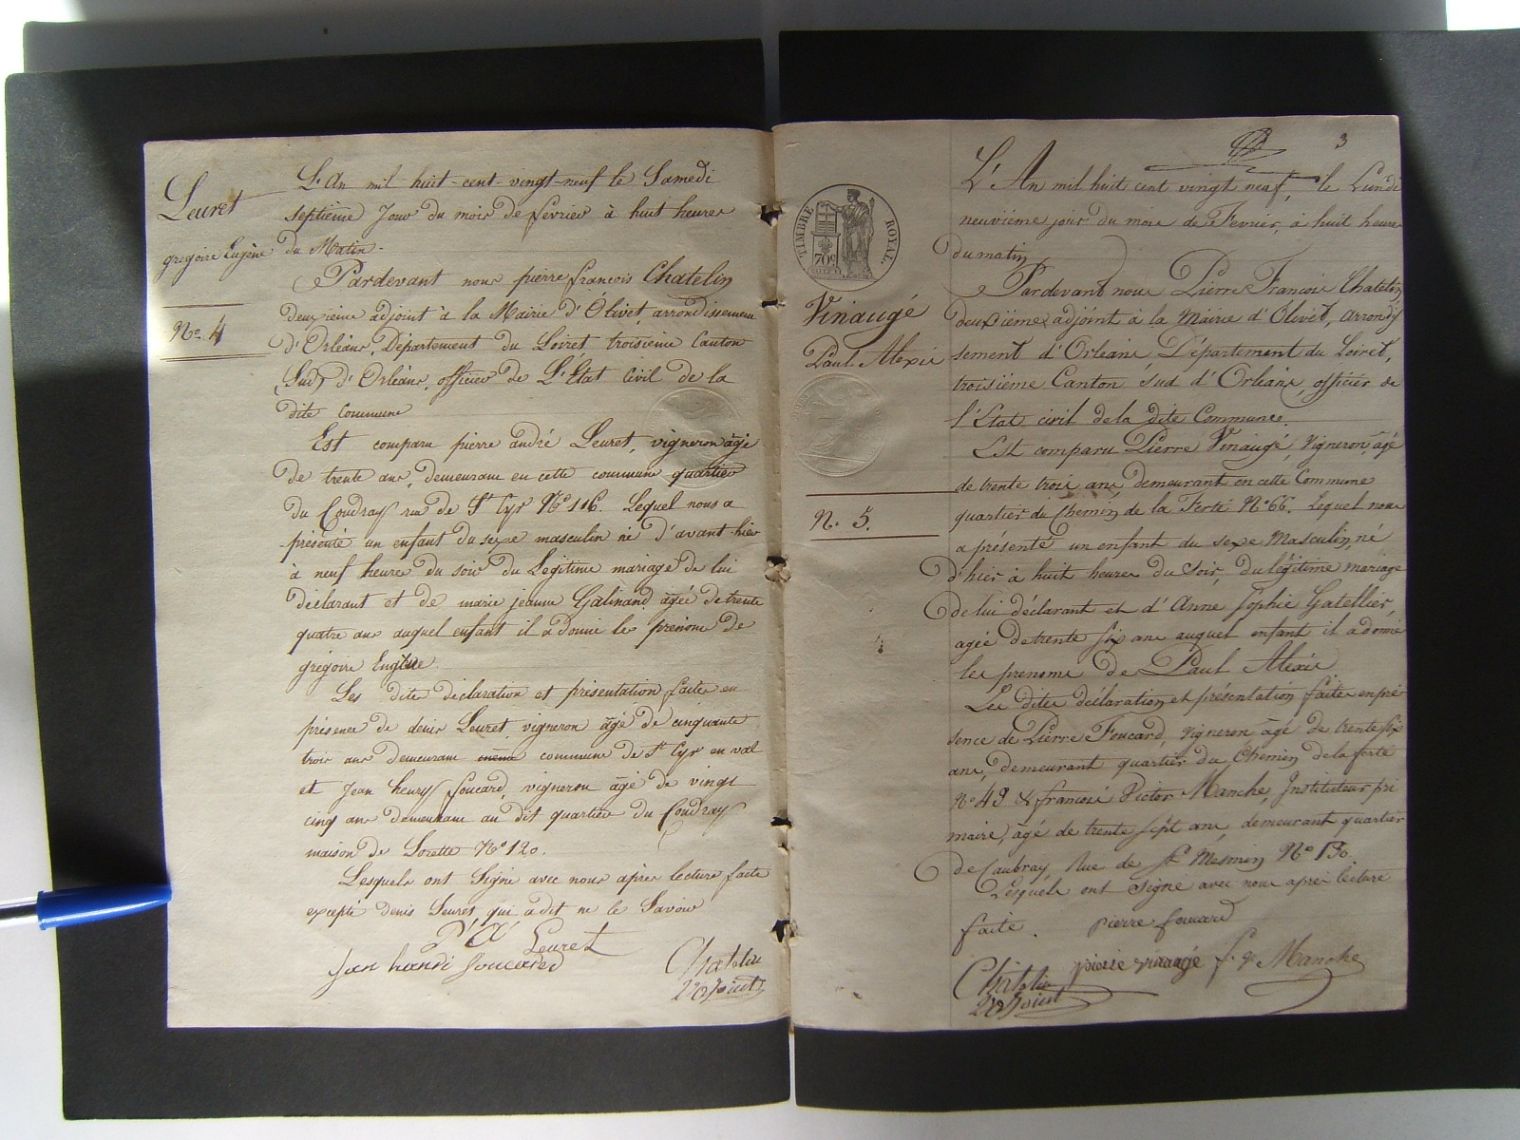 Leuret
grégoire Eugène
No. 4
L'An mil huit-cent-vingt-neuf le Samedi
septième Jour du mois de fevrier à huit heures
du Matin.
Pardevant nous pierre françois Chatelin
deuxieme adjoint à la Mairie d'Olivet, arrondissement
d'Orléans, Département du Loiret troisieme Canton
Sud d'Orléans, officier de L'Etat Civil de la
dite Commune
Est comparu pierre andré Leuret, vigneron âgé
de trente ans, demeurant en cette commune quartier
du Coudray rue de St Cyr No 116. Lequel nous a
présenté un enfant du sexe masculin né d'avant-hier
à neuf heures du soir du Légitime mariage de lui
déclarant et de marie jeanne Galinand âgée de trente
quatre ans auquel enfant il a donné les prénoms de
grégoire Eugène.
Les dites déclaration et présentation faites en
présence de denis Leuret, vigneron âgé de cinquante
trois ans demeurant commune de St Cyr en val
et Jean henry foucard, vigneron âgé de vingt
cinq ans demeurant au dit quartier du Coudray
maison de Lorette No 120.
Lesquels ont Signé avec nous après lecture faite
excepté denis Leuret qui a dit ne le Savoir
Leuret
Jan handi foucard
Chatelin
2e adjoint
3
TIMBRE ROYAL
70c
Vinaugé
Paul Alexis
N. 5.
L'An mil huit cent vingt neuf, le Lundi
neuvième jour du mois de Fevrier, à huit heures
du matin
Pardevant nous Pierre François Chatelin
deuxième adjoint à la Mairie d'Olivet, arrondis
sement d'Orleans Département du Loiret,
troisième Canton Sud d'Orleans, officier de
l'Etat civil de la dite Commune.
Est comparu Pierre Vinaugé, Vigneron, âgé
de trente trois ans demeurant en cette Commune
quartier du Chemin de la Ferté No 66. Lequel nous
a présenté un enfant du sexe Masculin, né
d'hier à huit heures du Soir, du légitime mariage
de lui déclarant et d'Anne Sophie Gatellier,
agée de trente six ans auquel enfant il a donné
les prenoms de Paul Alexis
Les dites déclaration et présentation faites en pré
sence de Pierre Foucard, vigneron âgé de trente six
ans, demeurant quartier du Chemin de la ferté
No 49 & françois Victor Manche, Instituteur pri
maire, âgé de trente sept ans, demeurant quartier
de Caubray Rue de St Mesmin No 130.
Lesquels ont signé avec nous après lecture
faite. pierre foucard
pierre vinaugé f. v Manche
Chatelin
2e adjoint